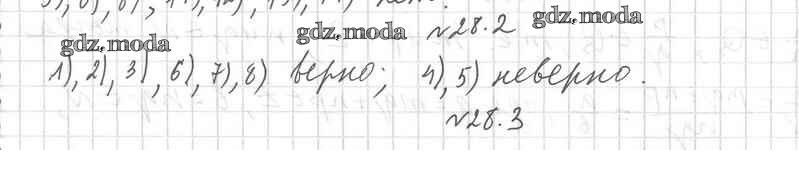 №28.2
gdz.moda gdz.moda gdz.moda
1), 2), 3), 6), 7), 8) верно; 4), 5) неверно.
№28.3